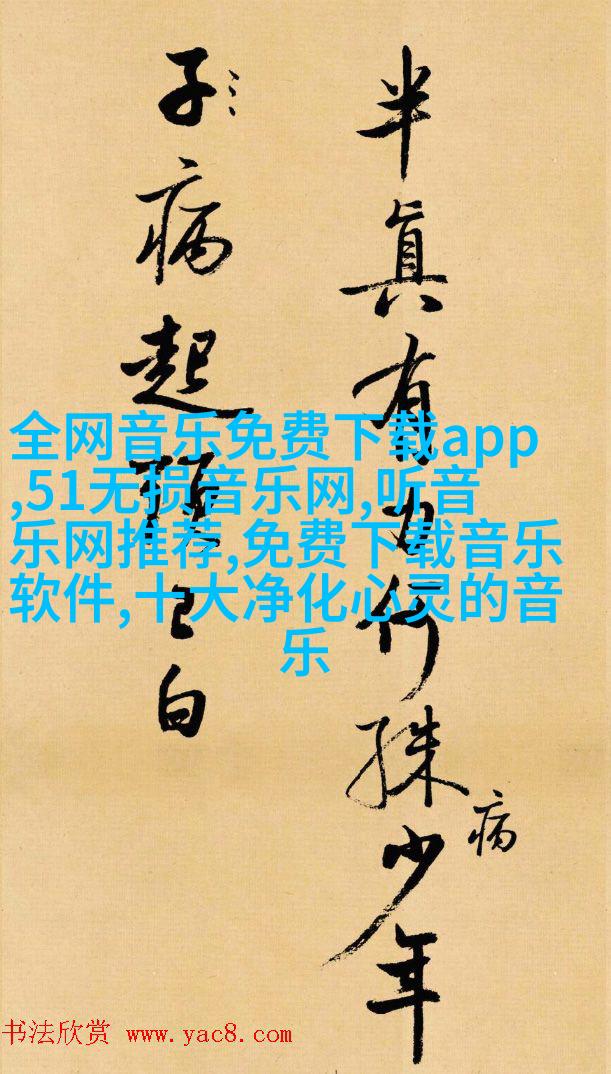 半真有何殊少年
病
子病起已白
全网音乐免费下载app
,51无损音乐网,听音
乐网推荐,免费下载音乐
软件,十大净化心灵的音
乐
书法欣赏 www.yac8.com